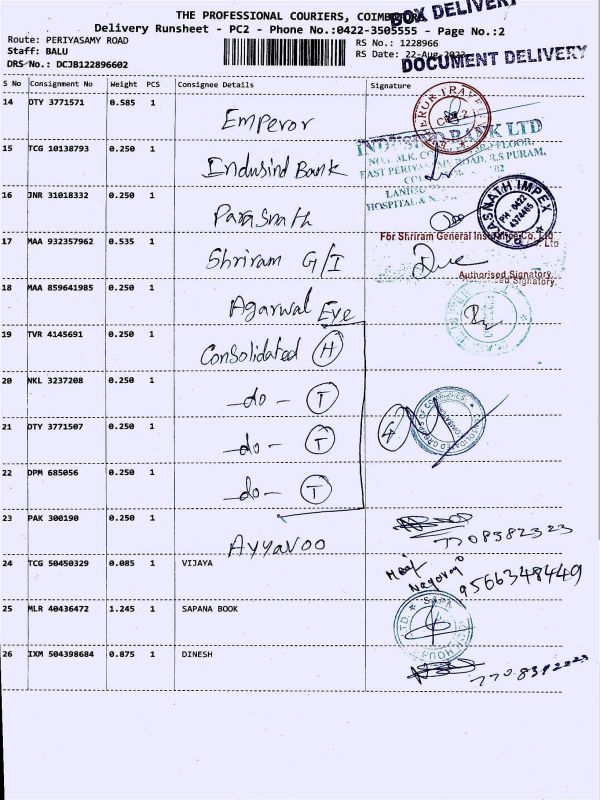 THE PROFESSIONAL COURIERS,
BOX DELIVERY
Delivery Runsheet - PC2 - Phone No.:0422-3505555 - Page No.:2
Route: PERIYASAMY ROAD
RS No.: 1228966
Staff: BALU
RS Date: 22-Aug
DOCUMENT DELIVERY
DRS No.: DCJB122896602
S No Consignment No Weight PCS Consignee Details Signature
14 DTY 3771571 0.585 1 Emperor
15 TCG 10138793 0.250 1 Indusind Bank
INDUSIND BANK LTD
EAST PERIYASAMY ROAD, R.S PURAM,
HOSPITAL &
16 JNR 31018332 0.250 1 Parasnath
PH : 0422
4374465
17 MAA 932357962 0.535 1 Shriram G/I
For Shriram General Insurance Co. Ltd
Authorised Signatory
18 MAA 859641985 0.250 1 Agarwal Eye
19 TVR 4145691 0.250 1 Consolidated H
20 NKL 3237208 0.250 1 -do- T
21 DTY 3771507 0.250 1 -do- T
22 DPM 685056 0.250 1 -do- T
4
23 PAK 300190 0.250 1 Ayyavoo
7708382323
24 TCG 50450329 0.085 1 VIJAYA
9566348449
25 MLR 40436472 1.245 1 SAPANA BOOK
26 IXM 504398684 0.875 1 DINESH